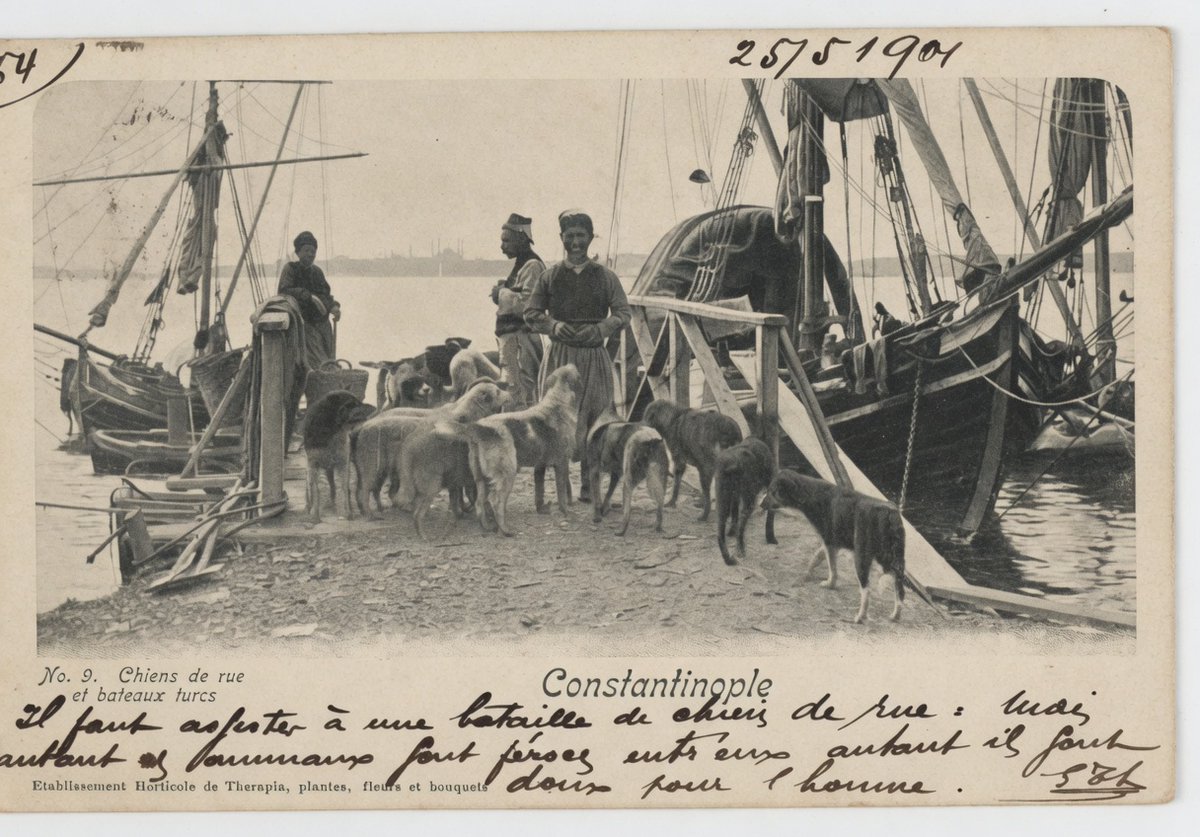 54)
25/5 1901
No. 9. Chiens de rue
et bateaux turcs
Constantinople
Il faut assister à une bataille de chiens de rue : Mais
autant ces animaux sont féroces entr'eux autant ils sont
Etablissement Horticole de Therapia, plantes, fleurs et bouquets
doux pour l'homme.